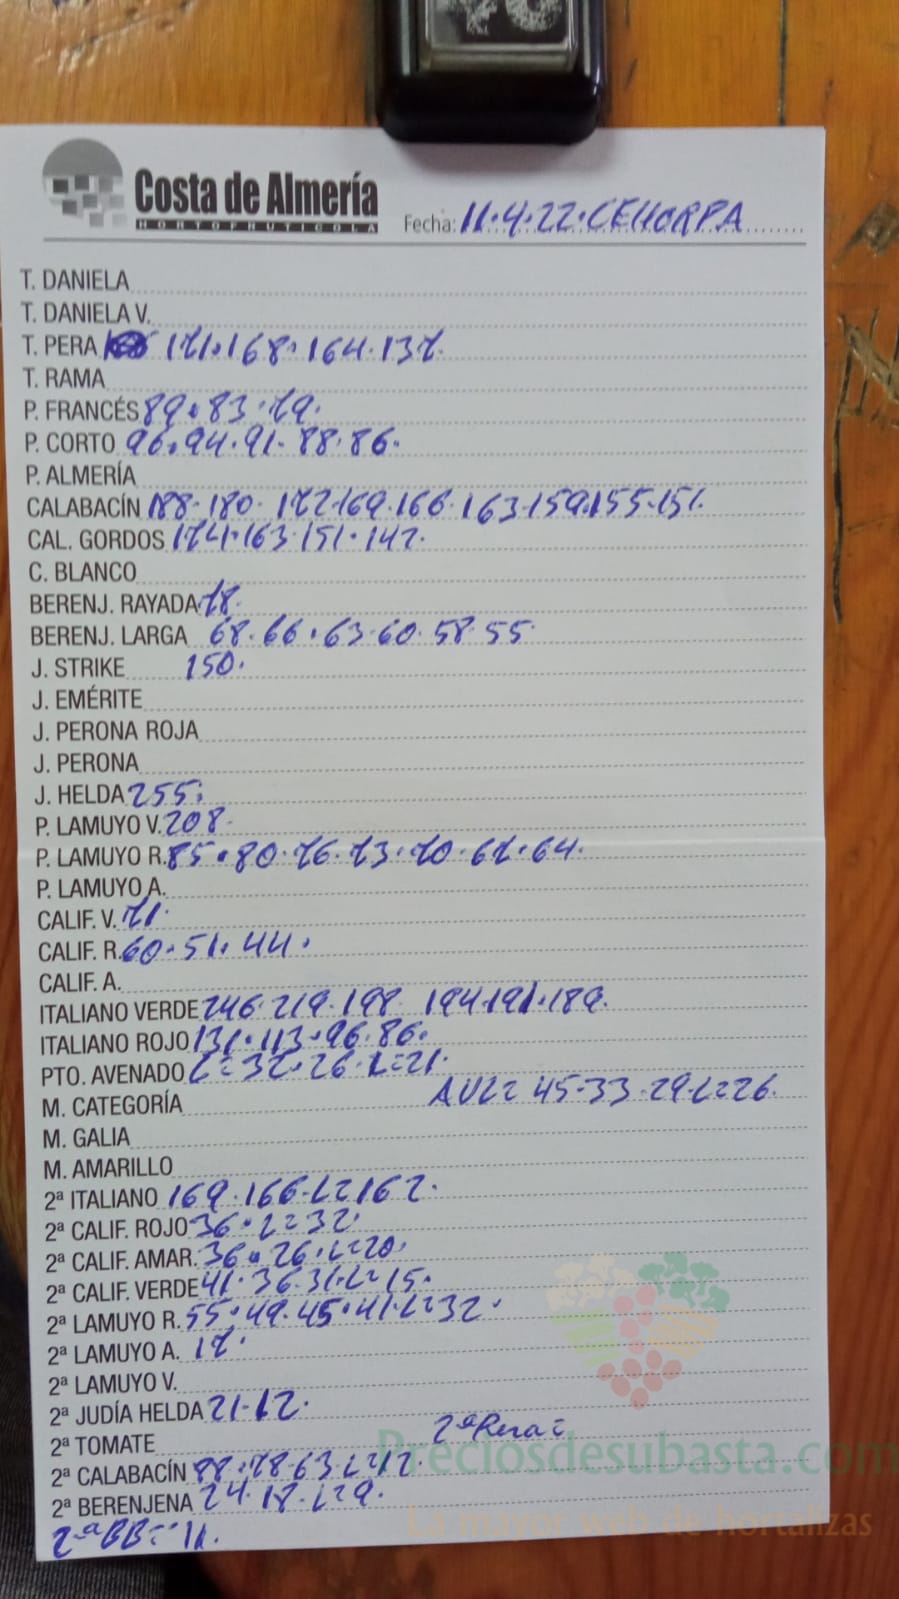 Costa de Almería
HORTOFRUTICOLA
Fecha: 11.4.22.CEHORPA
T. DANIELA
T. DANIELA V.
T. PERA 171.168.164.137.
T. RAMA
P. FRANCÉS 89.83.79.
P. CORTO 96.94.91.88.86.
P. ALMERÍA
CALABACÍN 188.180.172.169.166.163.159.155.151.
CAL. GORDOS 174.163.151.147.
C. BLANCO
BERENJ. RAYADA 78.
BERENJ. LARGA 68.66.63.60.58.55
J. STRIKE 150.
J. EMÉRITE
J. PERONA ROJA
J. PERONA
J. HELDA 255.
P. LAMUYO V. 208.
P. LAMUYO R. 85.80.76.73.70.67.64.
P. LAMUYO A.
CALIF. V. 71.
CALIF. R. 60.51.44.
CALIF. A.
ITALIANO VERDE 246.219.198 194.191.189.
ITALIANO ROJO 131.113.96.86.
PTO. AVENADO L=37.26.L=21.
AVL= 45.33.29.L=26.
M. CATEGORÍA
M. GALIA
M. AMARILLO
2ª ITALIANO 169.166.L=162.
2ª CALIF. ROJO 36.L=32.
2ª CALIF. AMAR. 36.26.L=20.
2ª CALIF. VERDE 41.36.31.L=15.
2ª LAMUYO R. 55.49.45.41.L=32.
2ª LAMUYO A. 17.
2ª LAMUYO V.
2ª JUDÍA HELDA 21.
2ª TOMATE 2ª Pera=
2ª CALABACÍN 88.78.63.
2ª BERENJENA 24.17.L=9.
2ª BB= 11.
Preciosdesubasta.com
La mayor web de hortalizas